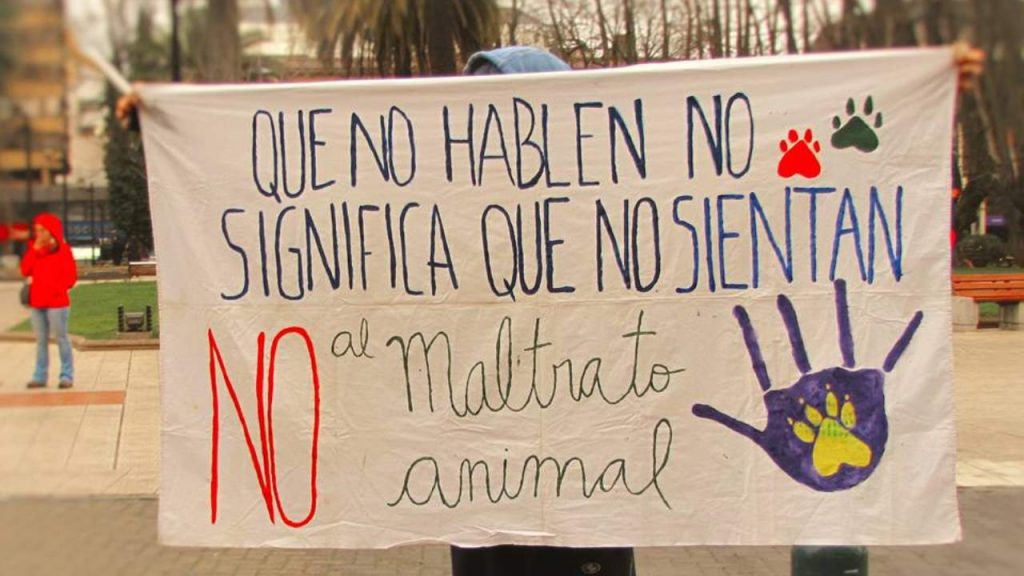 QUE NO HABLEN NO
SIGNIFICA QUE NO SIENTAN
NO al Maltrato
animal